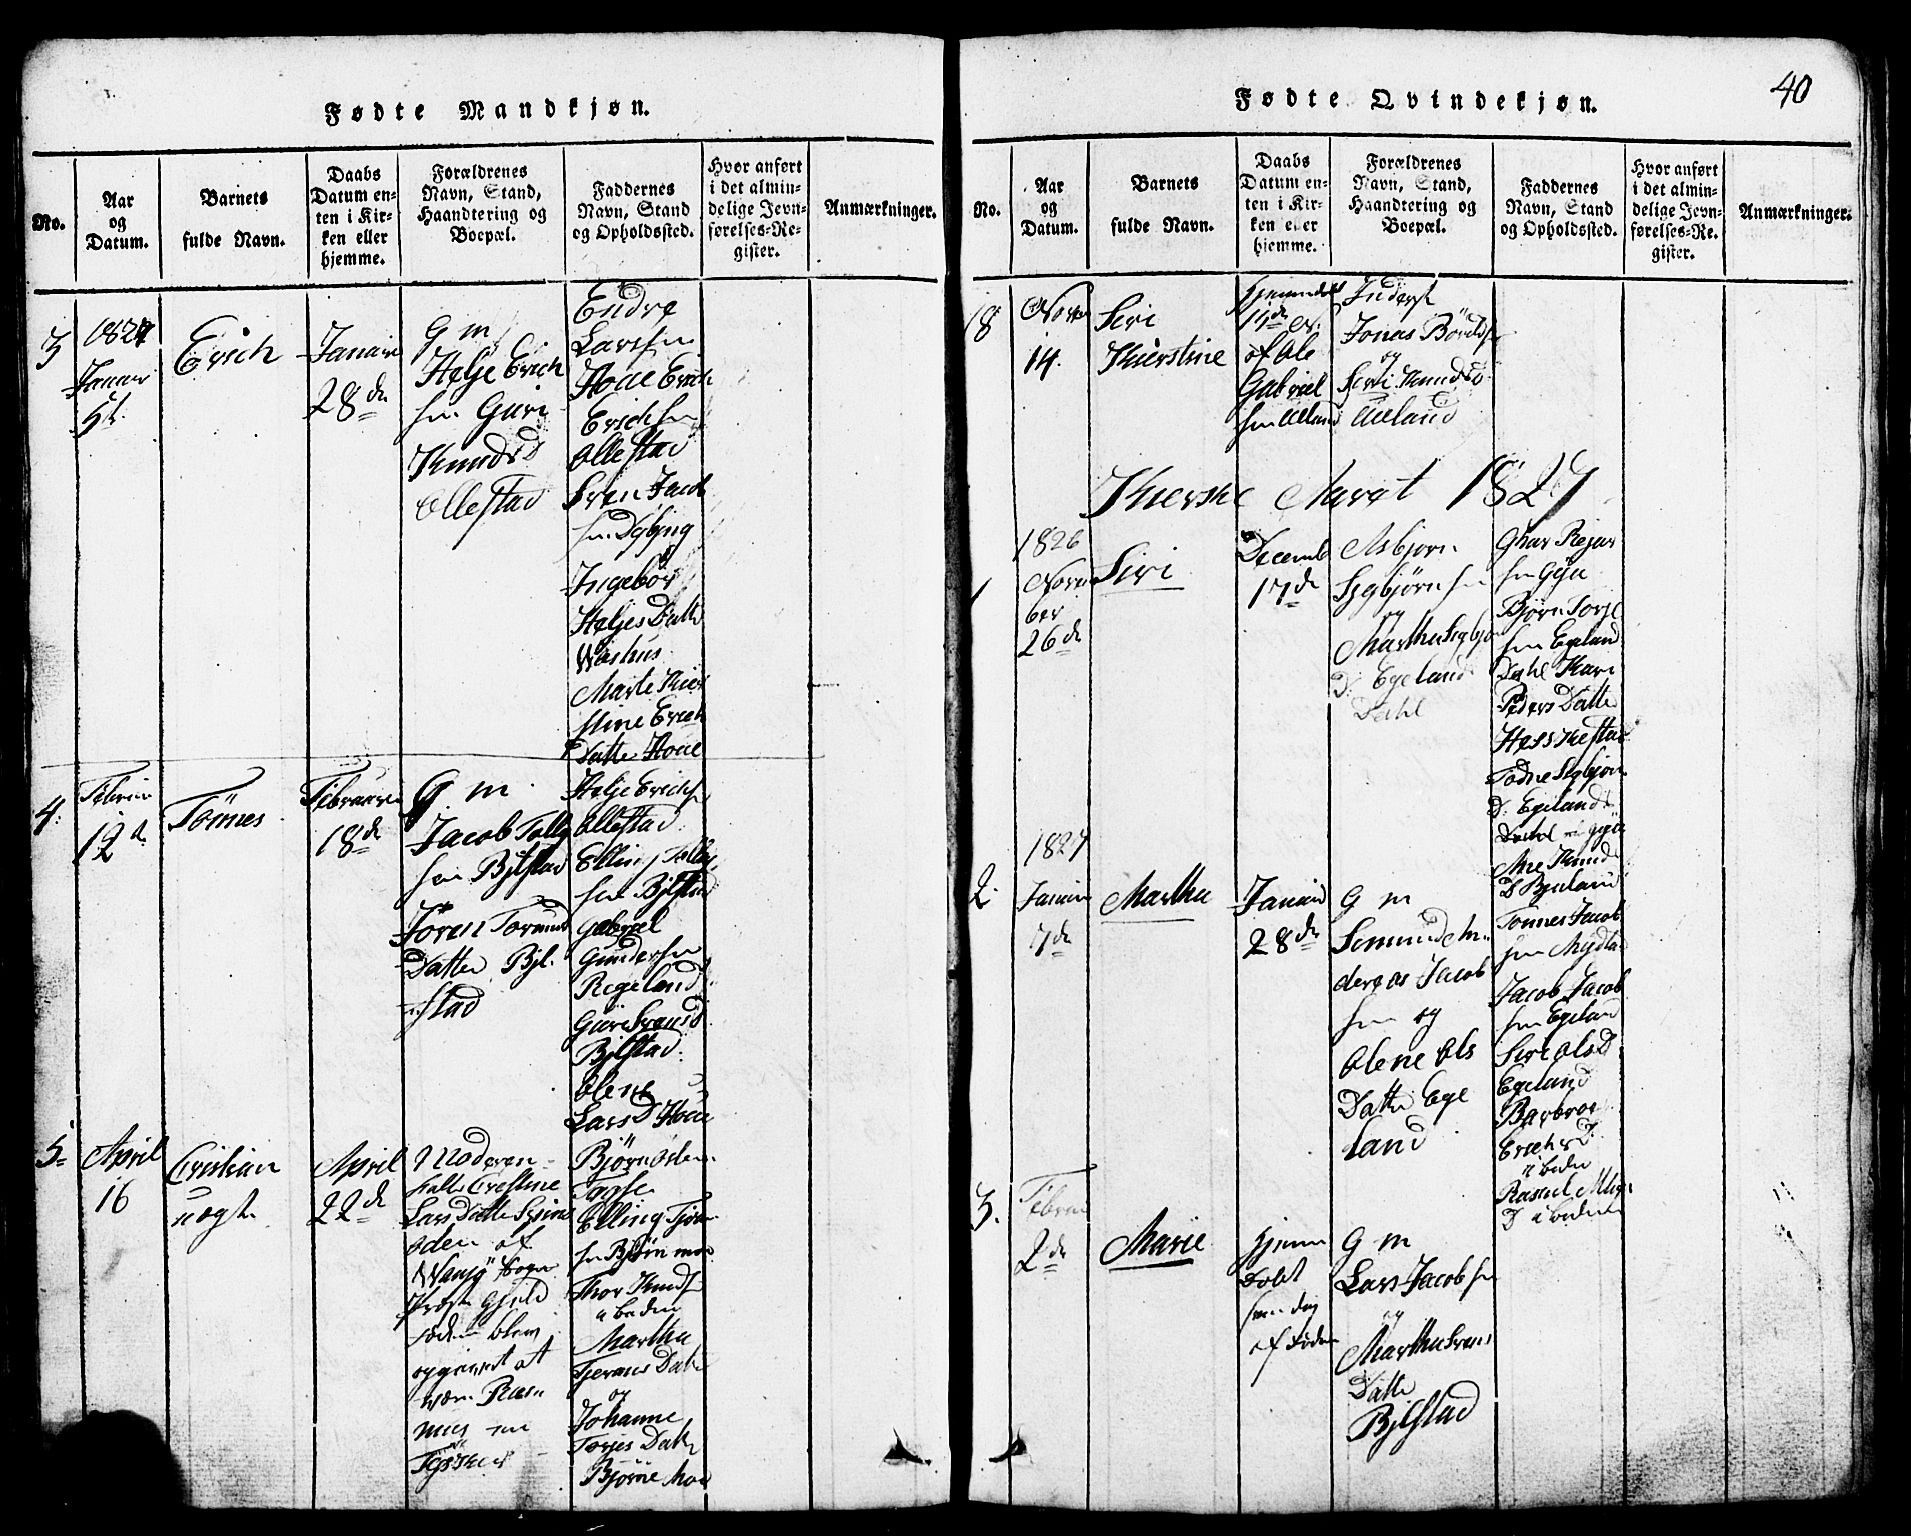 Fødte Mandkjøn.
No.
Aar
og
Datum.
Barnets
fulde Navn.
Daabs
Datum en-
ten i Kir-
ken eller
hjemme.
Forældrenes
Navn, Stand,
Haandtering og
Boepæl.
Faddernes
Navn, Stand
og Opholdssted.
Hvor anført
i det almin-
delige Jevn-
førelses-Re-
gister.
Anmærkninger.
3
1827
Januar
Erich
Januar
28de
G m
Helje Erich
sen Guri
Knudsd
Ollestad
Endre
Larssen
Houe Erich
Erichsen
Ollestad
Sven Jacob
sen Dybing
Ingebor
Heljes Datte
Washus
Marte Kier
stine Erich
Datte Houe
4.
Februar
12de
Tönnes
Februar
18de
G m
Jacob Tollg
sen Bjlstad
Jören Tormund
Datter Bjl-
stad
Helje Erichs
Ollestad
Elling Tolleg
sen Bjlstad
Gabriel
Gundersen
Regeland
Guri Svensd
Bjlstad
Olene
Lars D Houe
5
April
16
Cristian
uægte
April
22de
Moderen
Cirstine
Lars Datter
oden af
Præste Gjeld
opgivet at
være Rasm
mus en
Bjørn Osten
Elling Tjøm
sen Bjørnmoe
Thor Knuds
ibeden
Martha
Datte
og
Johanne
Torjes Datte
Bjørne Moe
40
Fødte Qvindekjøn.
No.
Aar
og
Datum.
Barnets
fulde Navn.
Daabs
Datum en-
ten i Kir-
ken eller
hjemme.
Forældrenes
Navn, Stand,
Haandtering og
Boepæl.
Faddernes
Navn, Stand
og Opholdssted.
Hvor anført
i det almin-
delige Jevn-
førelses-Re-
gister.
Anmærkninger.
18
14.
Siri
Kierstine
17de
af Ole
Gabriel
sen Ueland
Inderst
Jonas
og
Siri Knudsd
Ueland
Kierske Aaret 1827
1
1826
Novem
ber
26de
Siri
Decemb
17de
Asbjørn
Sigbjørnsen
og
Martha Sigbjø
D: Egeland
Dahl
Bjørn Torje
sen Egeland
Dahl Kari
Peders Datte
Heskestad
Todne Sigbjørn
D: Egelands
Dahl
Ane Knud
D Bjeland
2
1827
Januar
7de
Martha
Januar
28de
G m
Semund An
dereas Jacob
sen og
Olene Ols
Datte Ege
land
Tönnes Jacob
sen Mydla
Jacob Jacob
sen Egeland
Siri Ols D
Egeland
Barbroe
Erichs D:
ibeden
Rachel
D ibeden
3.
Februar
2de
Marie
hjemme
døbt
samme dag
G m
Lars Jacobsen
og
Martha Svens
Datte
Bjlstad